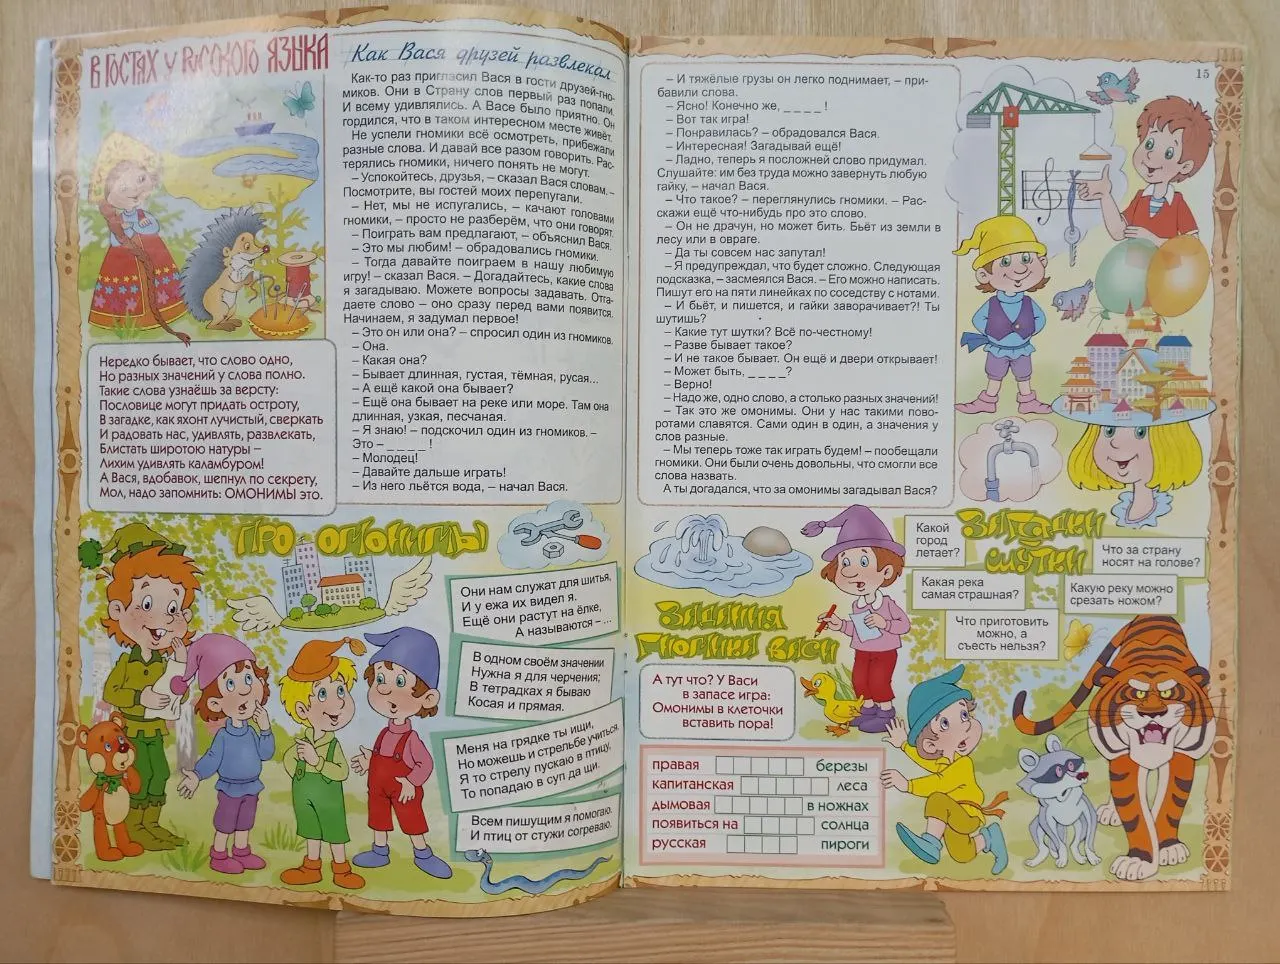 В ГОСТЯХ У РУССКОГО ЯЗЫКА
Нередко бывает, что слово одно,
Но разных значений у слова полно.
Такие слова узнаёшь за версту:
Пословице могут придать остроту,
В загадке, как яхонт лучистый, сверкать
И радовать нас, удивлять, развлекать,
Блистать широтою натуры –
Лихим удивлять каламбуром!
А Вася, вдобавок, шепнул по секрету,
Мол, надо запомнить: ОМОНИМЫ это.
Как Вася друзей развлекал
Как-то раз пригласил Вася в гости друзей-гно-
миков. Они в Страну слов первый раз попали.
И всему удивлялись. А Васе было приятно. Он
гордился, что в таком интересном месте живёт.
Не успели гномики всё осмотреть, прибежали
разные слова. И давай все разом говорить. Рас-
терялись гномики, ничего понять не могут.
– Успокойтесь, друзья, – сказал Вася словам. –
Посмотрите, вы гостей моих перепугали.
– Нет, мы не испугались, – качают головами
гномики, – просто не разберём, что они говорят.
– Поиграть вам предлагают, – объяснил Вася.
– Это мы любим! – обрадовались гномики.
– Тогда давайте поиграем в нашу любимую
игру! – сказал Вася. – Догадайтесь, какие слова
я загадываю. Можете вопросы задавать. Отга-
даете слово – оно сразу перед вами появится.
Начинаем, я задумал первое!
– Это он или она? – спросил один из гномиков.
– Она.
– Какая она?
– Бывает длинная, густая, тёмная, русая...
– А ещё какой она бывает?
– Ещё она бывает на реке или море. Там она
длинная, узкая, песчаная.
– Я знаю! – подскочил один из гномиков. –
Это – _ _ _ _ !
– Молодец!
– Давайте дальше играть!
– Из него льётся вода, – начал Вася.
ПРО ОМОНИМЫ
Они нам служат для шитья,
И у ежа их видел я.
Ещё они растут на ёлке,
А называются – ...
В одном своём значении
Нужна я для черчения;
В тетрадках я бываю
Косая и прямая.
Меня на грядке ты ищи,
Но можешь и стрельбе учиться.
Я то стрелу пускаю в птицу,
То попадаю в суп да щи.
Всем пишущим я помогаю.
И птиц от стужи согреваю.
15
– И тяжёлые грузы он легко поднимает, – при-
бавили слова.
– Ясно! Конечно же, _ _ _ _ !
– Вот так игра!
– Понравилась? – обрадовался Вася.
– Интересная! Загадывай ещё!
– Ладно, теперь я посложней слово придумал.
Слушайте: им без труда можно завернуть любую
гайку, – начал Вася.
– Что такое? – переглянулись гномики. – Рас-
скажи ещё что-нибудь про это слово.
– Он не драчун, но может бить. Бьёт из земли в
лесу или в овраге.
– Да ты совсем нас запутал!
– Я предупреждал, что будет сложно. Следующая
подсказка, – засмеялся Вася. – Его можно написать.
Пишут его на пяти линейках по соседству с нотами.
– И бьёт, и пишется, и гайки заворачивает?! Ты
шутишь?
– Какие тут шутки? Всё по-честному!
– Разве бывает такое?
– И не такое бывает. Он ещё и двери открывает!
– Может быть, _ _ _ _ ?
– Верно!
– Надо же, одно слово, а столько разных значений!
– Так это же омонимы. Они у нас такими пово-
ротами славятся. Сами один в один, а значения у
слов разные.
– Мы теперь тоже так играть будем! – пообещали
гномики. Они были очень довольны, что смогли все
слова назвать.
А ты догадался, что за омонимы загадывал Вася?
ЗАДАНИЯ
ГНОМИКА ВАСИ
А тут что? У Васи
в запасе игра:
Омонимы в клеточки
вставить пора!
правая березы
капитанская леса
дымовая в ножнах
появиться на солнца
русская пироги
ЗАГАДКИ
ШУТКИ
Какой
город
летает?
Что за страну
носят на голове?
Какая река
самая страшная?
Какую реку можно
срезать ножом?
Что приготовить
можно, а
съесть нельзя?